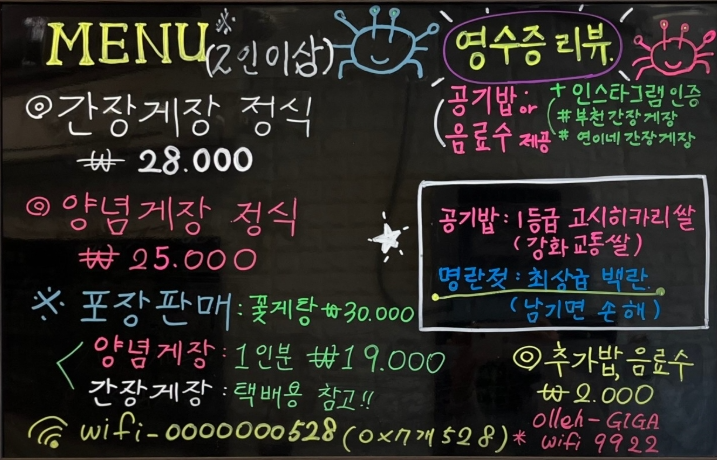 MENU ※(2인이상)
◎간장게장 정식
₩ 28.000
◎ 양념게장 정식
₩ 25.000
※ 포장판매 : 꽃게탕 ₩30.000
양념게장 : 1인분 ₩19.000
간장게장 : 택배용 참고!!
wifi-0000000528 (0x7개528)
영수증 리뷰.
(공기밥 or 음료수 제공
(+ 인스타그램 인증
# 부천간장게장
# 연이네간장게장
공기밥 : 1등급 고시히카리쌀
(강화교동쌀)
명란젓 : 최상급 백란.
(남기면 손해)
◎추가밥, 음료수
₩ 2.000
* olleh-GIGA
wifi 9922